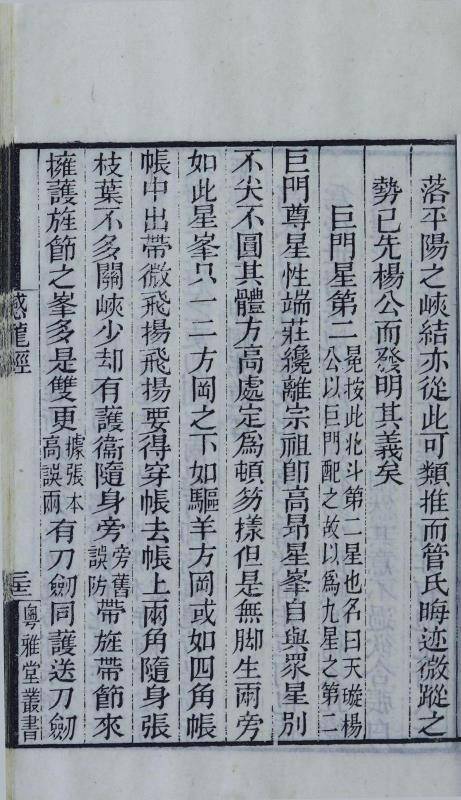 落平陽之峽結亦從此可類推而管氏晦迹微蹤之
勢已先楊公而發明其義矣
巨門星第二
冕按此北斗第二星也名曰天璇楊
公以巨門配之故以爲九星之第二
巨門尊星性端莊纔離宗祖卽高昂星峯自與眾星別
不尖不圓其體方高處定爲頓笏樣但是無脚生兩旁
如此星峯只一二方岡之下如驅羊方岡或如四角帳
帳中出帶微飛揚飛揚要得穿帳去帳上兩角隨身張
枝葉不多關峽少却有護衞隨身旁
旁舊
誤防
帶旌帶節來
擁護旌節之峯多是雙更
據張本
高誤兩
有刀劒同護送刀劒
撼龍經
三
粤雅堂叢書